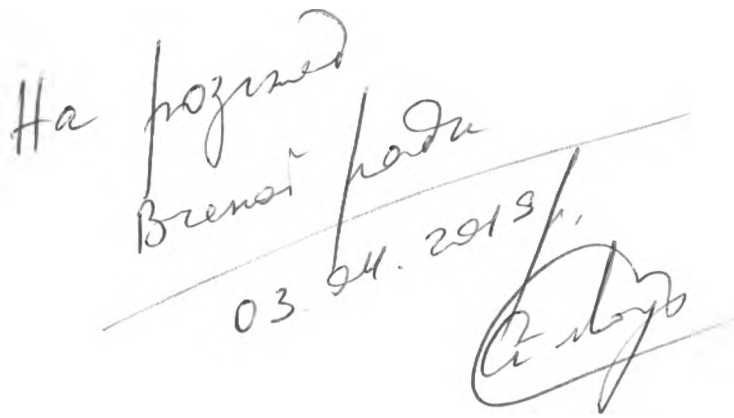 На розгляд
Вченої ради
03.04.2019р.